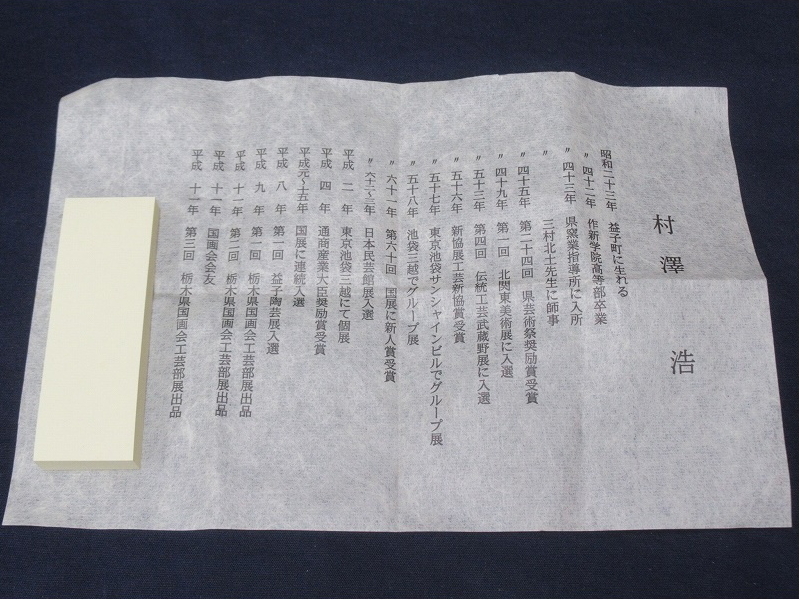 村澤 浩
昭和二十三年 益子町に生れる
〃 四十二年 作新学院高等部卒業
〃 四十三年 県窯業指導所に入所
〃 三村北土先生に師事
〃 四十五年 第二十四回 県芸術祭奨励賞受賞
〃 四十九年 第一回 北関東美術展に入選
〃 五十三年 第四回 伝統工芸武蔵野展に入選
〃 五十六年 新協展工芸新協賞受賞
〃 五十七年 東京池袋サンシャインビルでグループ展
〃 五十八年 池袋三越でグループ展
〃 六十一年 第六十回 国展に新人賞受賞
〃 六十二〜三年 日本民芸館展入選
平成 二年 東京池袋三越にて個展
平成 四年 通商産業大臣奨励賞受賞
平成元〜十五年 国展に連続入選
平成 八年 第一回 益子陶芸展入選
平成 九年 第一回 栃木県国画会工芸部展出品
平成 十一年 第二回 栃木県国画会工芸部展出品
平成 十一年 国画会会友
平成 十一年 第三回 栃木県国画会工芸部展出品